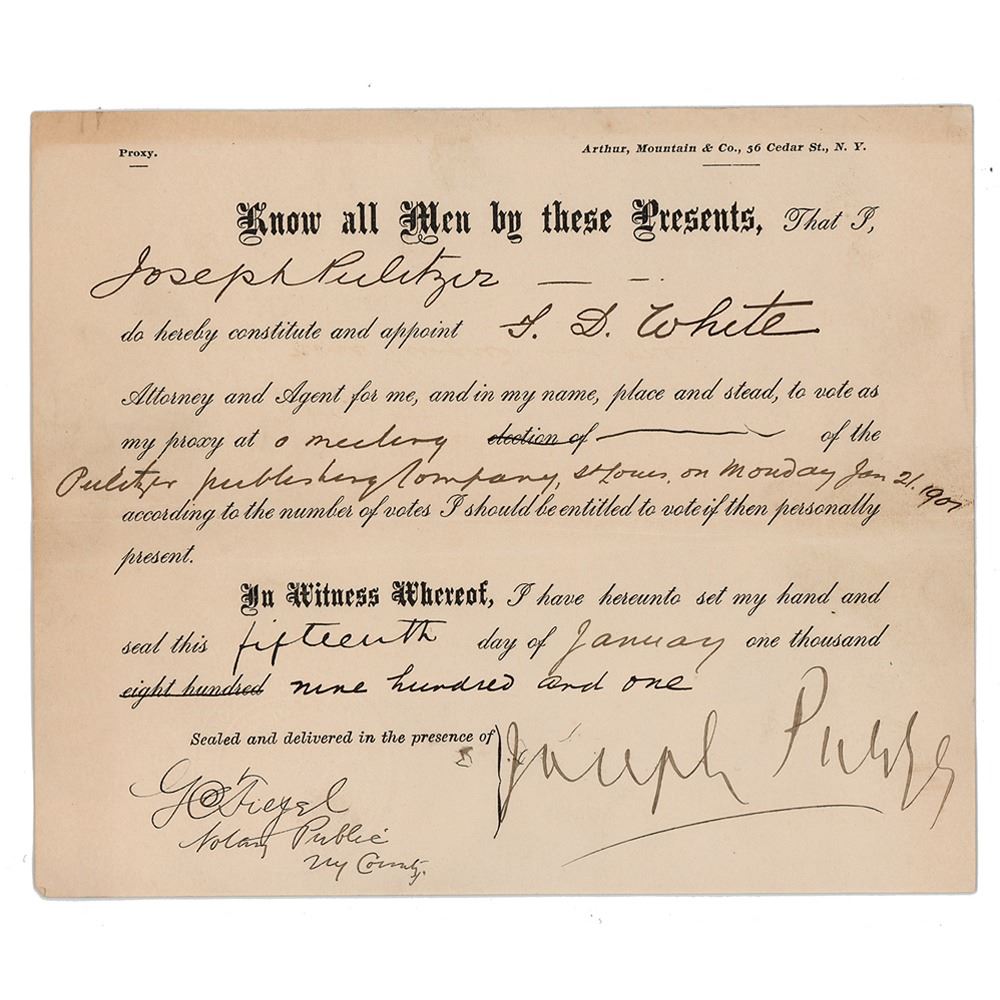 Proxy.
Arthur, Mountain & Co., 56 Cedar St., N. Y.
Know all Men by these Presents, That I,
Joseph Pulitzer — —
do hereby constitute and appoint F. D. White
Attorney and Agent for me, and in my name, place and stead, to vote as
my proxy at a meeting election of of the
Pulitzer publishing Company, St Louis, on Monday Jan 21, 1901
according to the number of votes I should be entitled to vote if then personally
present.
In Witness Whereof, I have hereunto set my hand and
seal this fifteenth day of January one thousand
eight hundred nine hundred and one
Sealed and delivered in the presence of
Joseph Pulitzer
Notary Public
NY County.